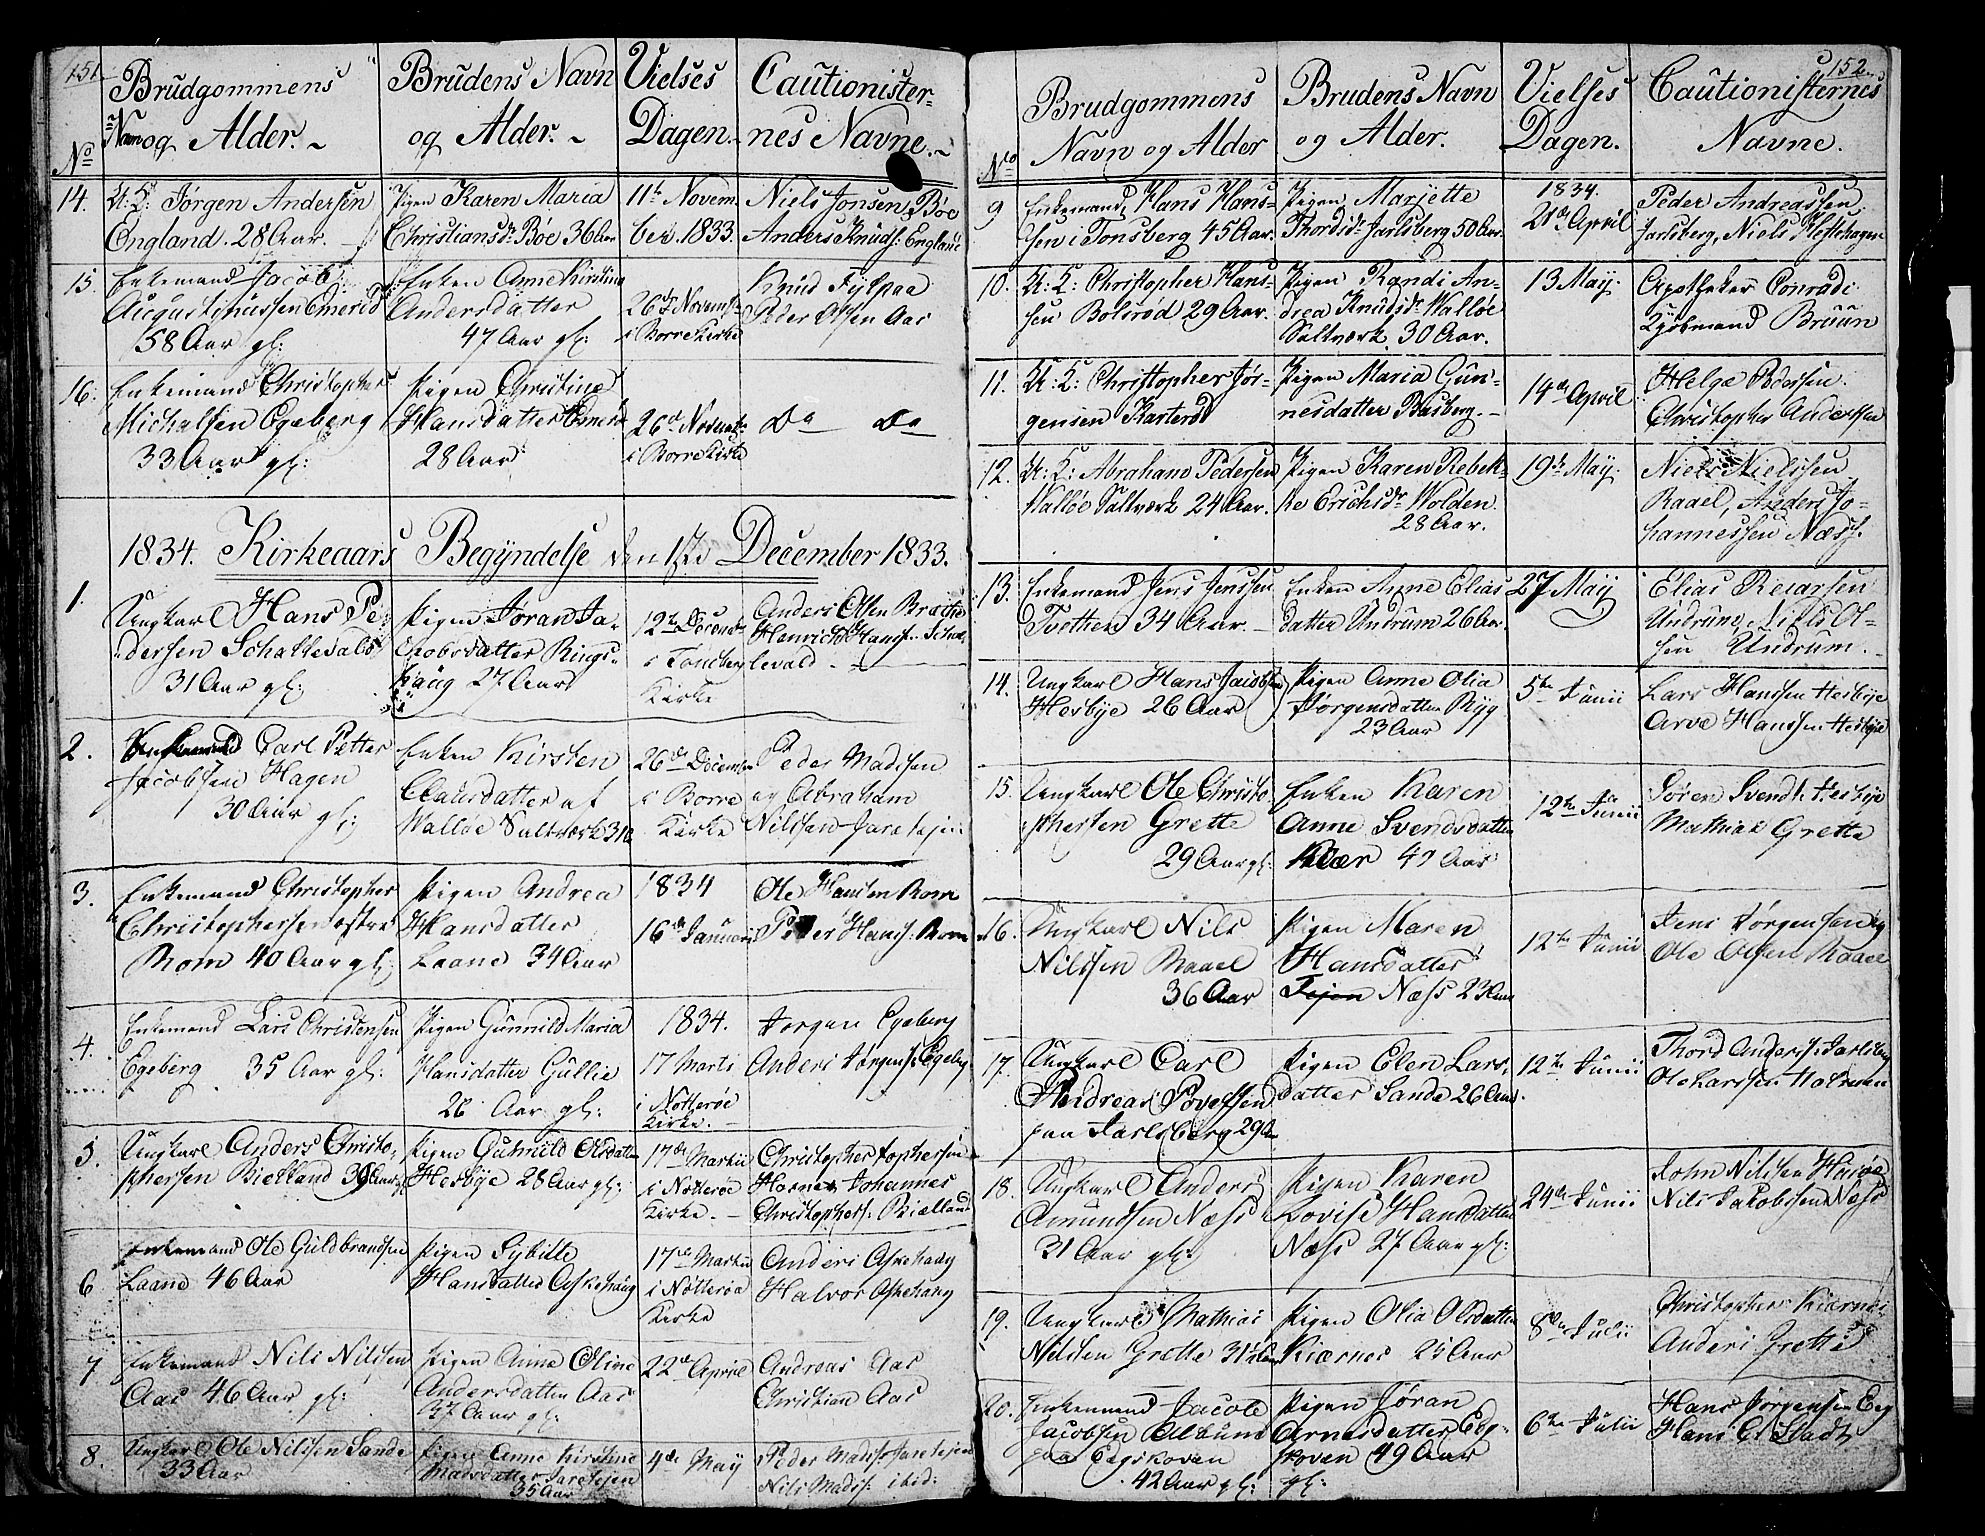 151.
Brudgommens
Navn og Alder. ~
Brudens Navn
og Alder. ~
Vielses
Dagen. ~
Cautionister-
nes Navne. ~
No
14.
U: K: Jørgen Andersen
England. 28 Aar.
Pigen Karen Maria
Christiansdr Bøe 36 Aar
11te Novem-
ber. 1833.
Niels Jonsen Bøe
Anders Knuds: England
15.
Enkemand Jacob
Augustinussen
58 Aar gl:
Enken Anne Kirstina
Andersdatter
47 Aar gl:
26de Novembr
i Borre Kirke
Knud Fylpaa
Peder Olsen Aas
16.
Enkemand Christopher
Michalsen Egeberg
33 Aar gl:
Pigen Christine
Hansdatter
28 Aar
26de Novembr
i Borre Kirke
do do
1834. Kirkeaars Begyndelse den 1ste December 1833.
1.
Ungkarl Hans Pe-
dersen Schallevald
31 Aar gl:
Pigen Joran Ja-
cobsdatter Rings-
haug 27 Aar
12te Decembr
i Tønsberg
Kirke
Anders Olsen
Henrich Hanss: Schal-
levald
2.
Carl Petter
Jacobsen Hagen
30 Aar gl:
Enken Kirsten
Clausdatter af
Walløe Saltværk 31 A
26de Decembr
i Borre
Kirke
Peder Madssen
og Abraham
Nilssen Jaretejen
3.
Enkemand Christopher
Christophersen østre
Rom 40 Aar gl:
Pigen Andrea
Hansdatter
Laane 34 Aar
1834
16de Januari
Ole Hansen Rom
Peder Hanss: Rom
4.
Enkemand Lars Christensen
Egeberg 35 Aar gl:
Pigen Gunnild Maria
Hansdatter Gullie
26 Aar gl:
1834.
17 Marti
i Nøtterøe
Kirke.
Jørgen Egeberg
Anders Jørgenss: Egeberg
5.
Ungkarl Anders Christo-
phersen Bielland 39 Aar gl
Pigen Gunnild Olsdatter
Hesbye 28 Aar gl:
17de Martii
i Nøtterøe
Kirke.
Christopher
Johannes
Christophers: Bielland
6
Enkemand Ole Guldbrandsen
Laane 46 Aar
Pigen Sybille
Hansdatter Askehaug
17de Martii
i Nøtterøe
Kirke
Anders Askehaug
Halvor Askehaug
7
Enkemand Nils Nilssen
Aas 46 Aar gl:
Pigen Anne Oline
Andersdatter Aas
37 Aar gl:
22de April
Andreas Aas
Christian Aas
8.
Ungkarl Ole Nilssen Sande
33 Aar
Pigen Anne Kirstine
Madsdatter Jaretejen
35 Aar
4de May
Peder Madss: Jaretejen
Nils Madss: ibid:
152.
Brudgommens
Navn og Alder
Brudens Navn
og Alder.
Vielses
Dagen.
Cautionisternes
Navne.
No
9
Enkemand, Hans Hans-
sen i Tønsberg 45 Aar.
Pigen Marjette
Thordsdr Jarlsberg 50 Aar.
1834.
21de April
Peder Andreassen
Jarlsberg, Niels Hestehagen
10.
U: K: Christopher Hans-
sen Bolsrød 29 Aar.
Pigen Randi An-
drea Knudsdr Walløe
Saltværk. 30 Aar.
13 May.
Apotheker Conradi
Kjøbmand Bruun
11.
U: K: Christopher Jør-
gensen
Pigen Maria Gun-
nesdatter Basberg.
14de April
Helge Pedersen
Christopher Andersen
12.
U: K: Abraham Pedersen
Walløe Saltværk 24 Aar.
Pigen Karen Rebek-
ke Erichsdr Wolden
28 Aar.
19de May.
Niels Nielssen
Raael, Anders Jo-
hannessen Næss.
13.
Enkemand Jens Jenssen
Tvethen 34 Aar.
Enken Anne Elias
datter Undrum 26 Aar.
27 May
Elias Reiarsen
Undrum, Niels Ol-
sen Undrum.
14.
Ungkarl Hans Jacobsen
Hesbye 26 Aar
Pigen Anne Olia
Jørgensdatter Ryg
23 Aar
5te Junii
Lars Hanssen Hesbye
Arve Hanssen Hesbye
15.
Ungkarl Ole Christo-
phersen Grette
29 Aar gl:
Enken Karen
Anne Svendsdatter
Kiær 49 Aar
12te Junii
Søren Svends: Hesbye
Mathias Grette
16.
Ungkarl Nils
Nilssen Raael
36 Aar
Pigen Maren
Hansdatter
Tejen Næss 23 Aar
12te Junii
Jens Jørgensen og
Ole Olsen Raael
17.
Ungkarl Carl
Andreas Povelsen
paa Jarlsberg 29 Aar
Pigen Elen Lars-
datter Sande 26 Aar.
12te Junii
Thord Anderss: Jarlsberg
Ole Larssen Holmen
18.
Ungkarl Anders
Amundsen Næss
31 Aar gl:
Pigen Karen
Lovise Hansdatter
Næss 27 Aar gl:
24de Junii
John Nilssen Husøe
Nils Jacobssen Næss
19.
Ungkarl Mathias
Nilssen Grette 31 Aar
Pigen Olia Olsdatter
Kiærnes 25 Aar
8de Julii
Christopher Kiærnes
Anders Grette
20.
Enkemand Jacob
Jacobsen
paa Eegskoven
42 Aar gl:
Pigen Jøran
Arnesdatter Eeg-
skoven 49 Aar
gl:
6te Julii
Hans Jørgensen Eeg
Hans